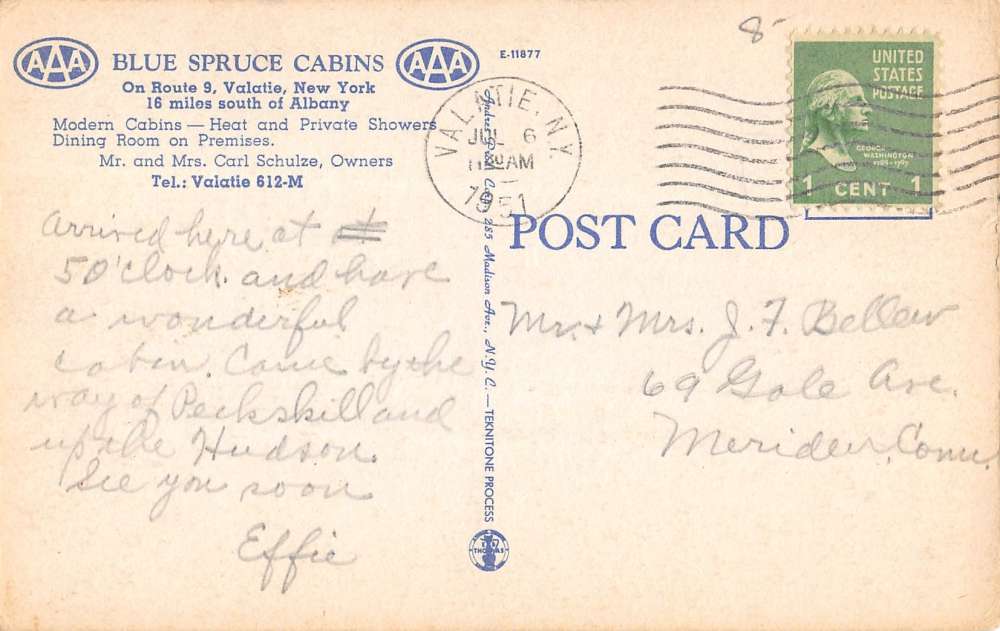 AAA BLUE SPRUCE CABINS AAA
On Route 9, Valatie, New York
16 miles south of Albany
Modern Cabins — Heat and Private Showers
Dining Room on Premises.
Mr. and Mrs. Carl Schulze, Owners
Tel.: Valatie 612-M
E-11877
8-
VALATIE, N.Y.
JUL 6
AM
1951
UNITED
STATES
POSTAGE
GEORGE
WASHINGTON
1 CENT 1
POST CARD
285 Madison Ave., N.Y.C. — TEKNITONE PROCESS
THOMAS
Arrived here at
5 O'clock and have
a wonderful
cabin. Came by the
way of Peekskill and
up the Hudson.
See you soon
Effie
Mr. & Mrs. J. F. Bellew
69 Gale Ave.
Meriden, Conn.